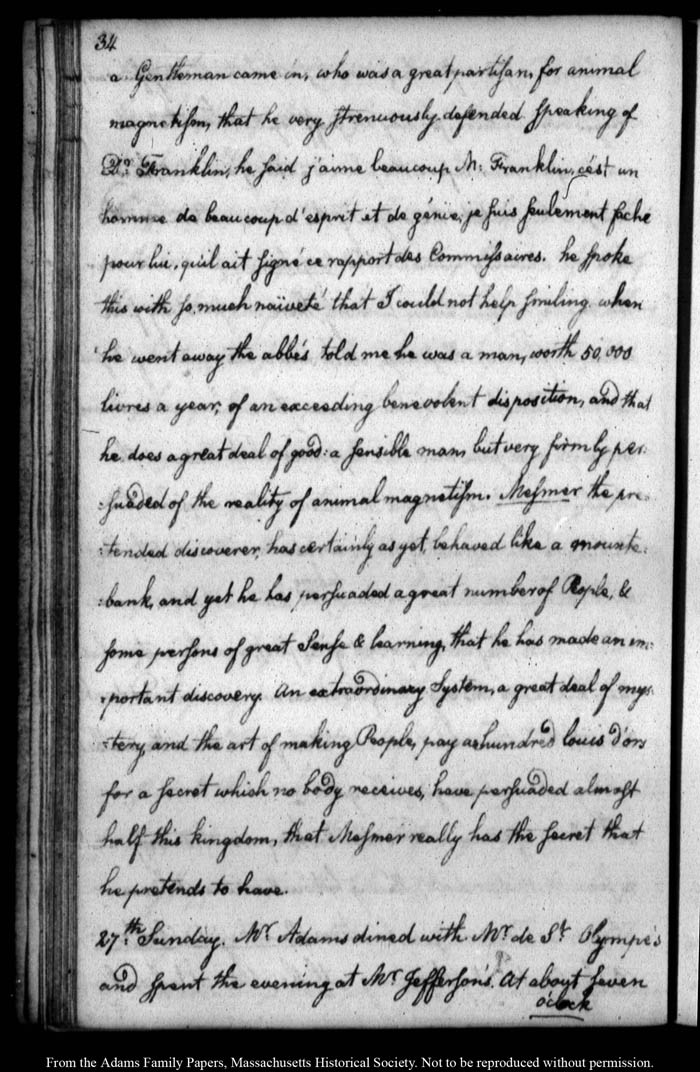 34
a Gentleman came in, who was a great partisan, for animal
magnetism, that he very strenuously defended speaking of
Dr. Franklin, he said j'aime beaucoup Mr. Franklin, c'ést un
homme de beaucoup d'esprit et de génie, je suis seulement faché
pour lui, quil ait signé ce rapport des Commissaires. he spoke
this with so much naïveté that I could not help smiling when
he went away the abbés told me he was a man, worth 50,000
livres a year, of an exceeding benevolent disposition, and that
he does a great deal of good: a sensible man, but very firmly per:
:suaded of the reality of animal magnetism. Mesmer the pre:
:tended discoverer, has certainly as yet, behaved like a mounte:
:bank, and yet he has persuaded a great number of People, &
some persons of great Sense & learning, that he has made an im:
:portant discovery. An extraordinary System, a great deal of mys:
:tery, and the art of making People, pay a hundred louis d'ors
for a secret which no body receives, have persuaded almost
half this kingdom, that Mesmer really has the secret that
he pretends to have.
27th. Sunday. Mr Adams dined with Mr de St Olympe's
and spent the evening at Mr Jefferson's. At about seven
o'clock
From the Adams Family Papers, Massachusetts Historical Society. Not to be reproduced without permission.